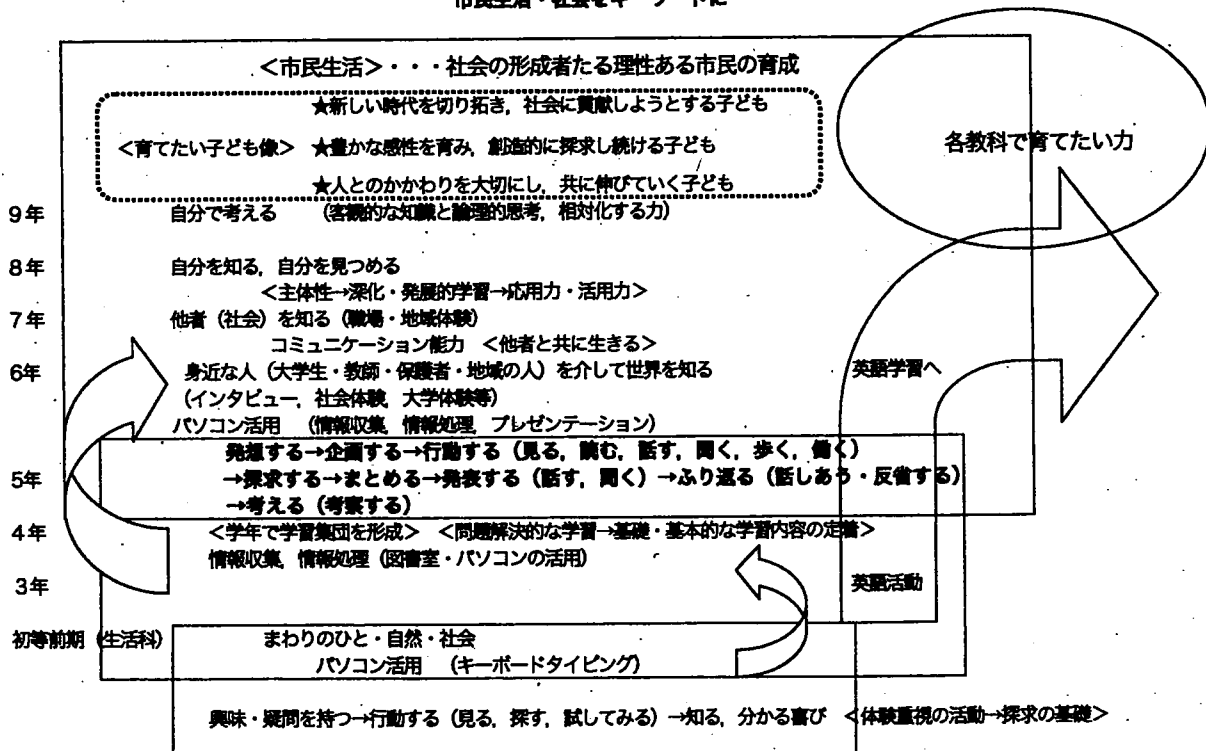 市民生活・社会をキーワードに
<市民生活>・・・社会の形成者たる理性ある市民の育成
★新しい時代を切り拓き，社会に貢献しようとする子ども
<育てたい子ども像> ★豊かな感性を育み，創造的に探求し続ける子ども
★人とのかかわりを大切にし，共に伸びていく子ども
各教科で育てたい力
9年 自分で考える （客観的な知識と論理的思考，相対化する力）
8年 自分を知る，自分を見つめる
<主体性→深化・発展的学習→応用力・活用力>
7年 他者（社会）を知る（職場・地域体験）
コミュニケーション能力 <他者と共に生きる>
6年 身近な人（大学生・教師・保護者・地域の人）を介して世界を知る 英語学習へ
（インタビュー，社会体験，大学体験等）
パソコン活用 （情報収集，情報処理，プレゼンテーション）
発想する→企画する→行動する（見る，読む，話す，聞く，歩く，働く）
5年 →探求する→まとめる→発表する（話す，聞く）→ふり返る（話しあう・反省する）
→考える（考察する）
4年 <学年で学習集団を形成> <問題解決的な学習→基礎・基本的な学習内容の定着>
情報収集，情報処理（図書室・パソコンの活用）
3年 英語活動
初等前期（生活科） まわりのひと・自然・社会
パソコン活用 （キーボードタイピング）
興味・疑問を持つ→行動する（見る，探す，試してみる）→知る，分かる喜び <体験重視の活動→探求の基礎>